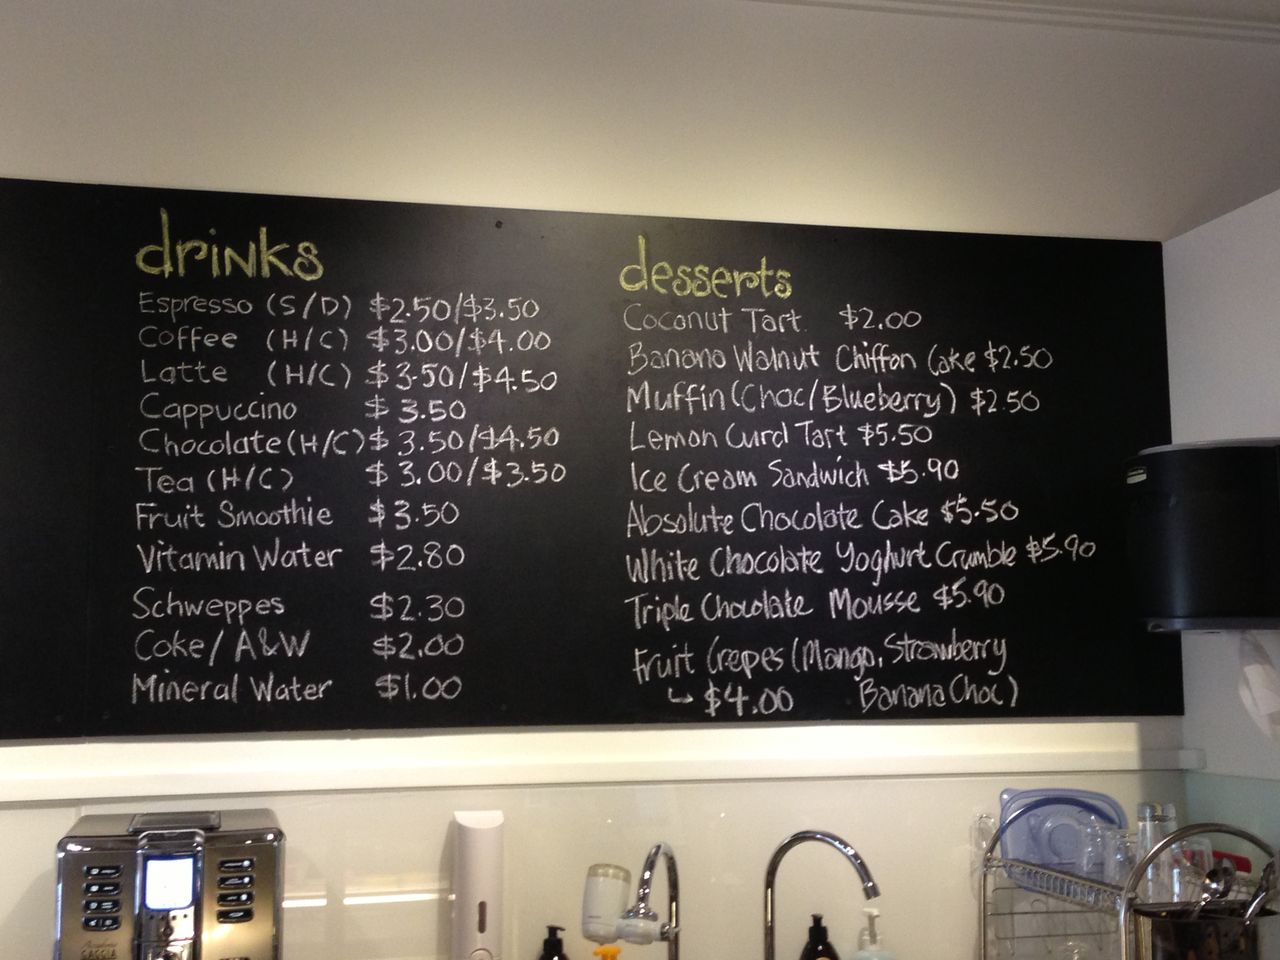 drinks
Espresso (S/D) $2.50/$3.50
Coffee (H/C) $3.00/$4.00
Latte (H/C) $3.50/$4.50
Cappuccino $3.50
Chocolate (H/C) $3.50/$4.50
Tea (H/C) $3.00/$3.50
Fruit Smoothie $3.50
Vitamin Water $2.80
Schweppes $2.30
Coke/A&W $2.00
Mineral Water $1.00
desserts
Coconut Tart $2.00
Banana Walnut Chiffon Cake $2.50
Muffin (Choc/Blueberry) $2.50
Lemon Curd Tart $5.50
Ice Cream Sandwich $5.90
Absolute Chocolate Cake $5.50
White Chocolate Yoghurt Crumble $5.90
Triple Chocolate Mousse $5.90
Fruit Crepes (Mango, Strawberry
↳ $4.00 Banana Choc)
GAGGIA